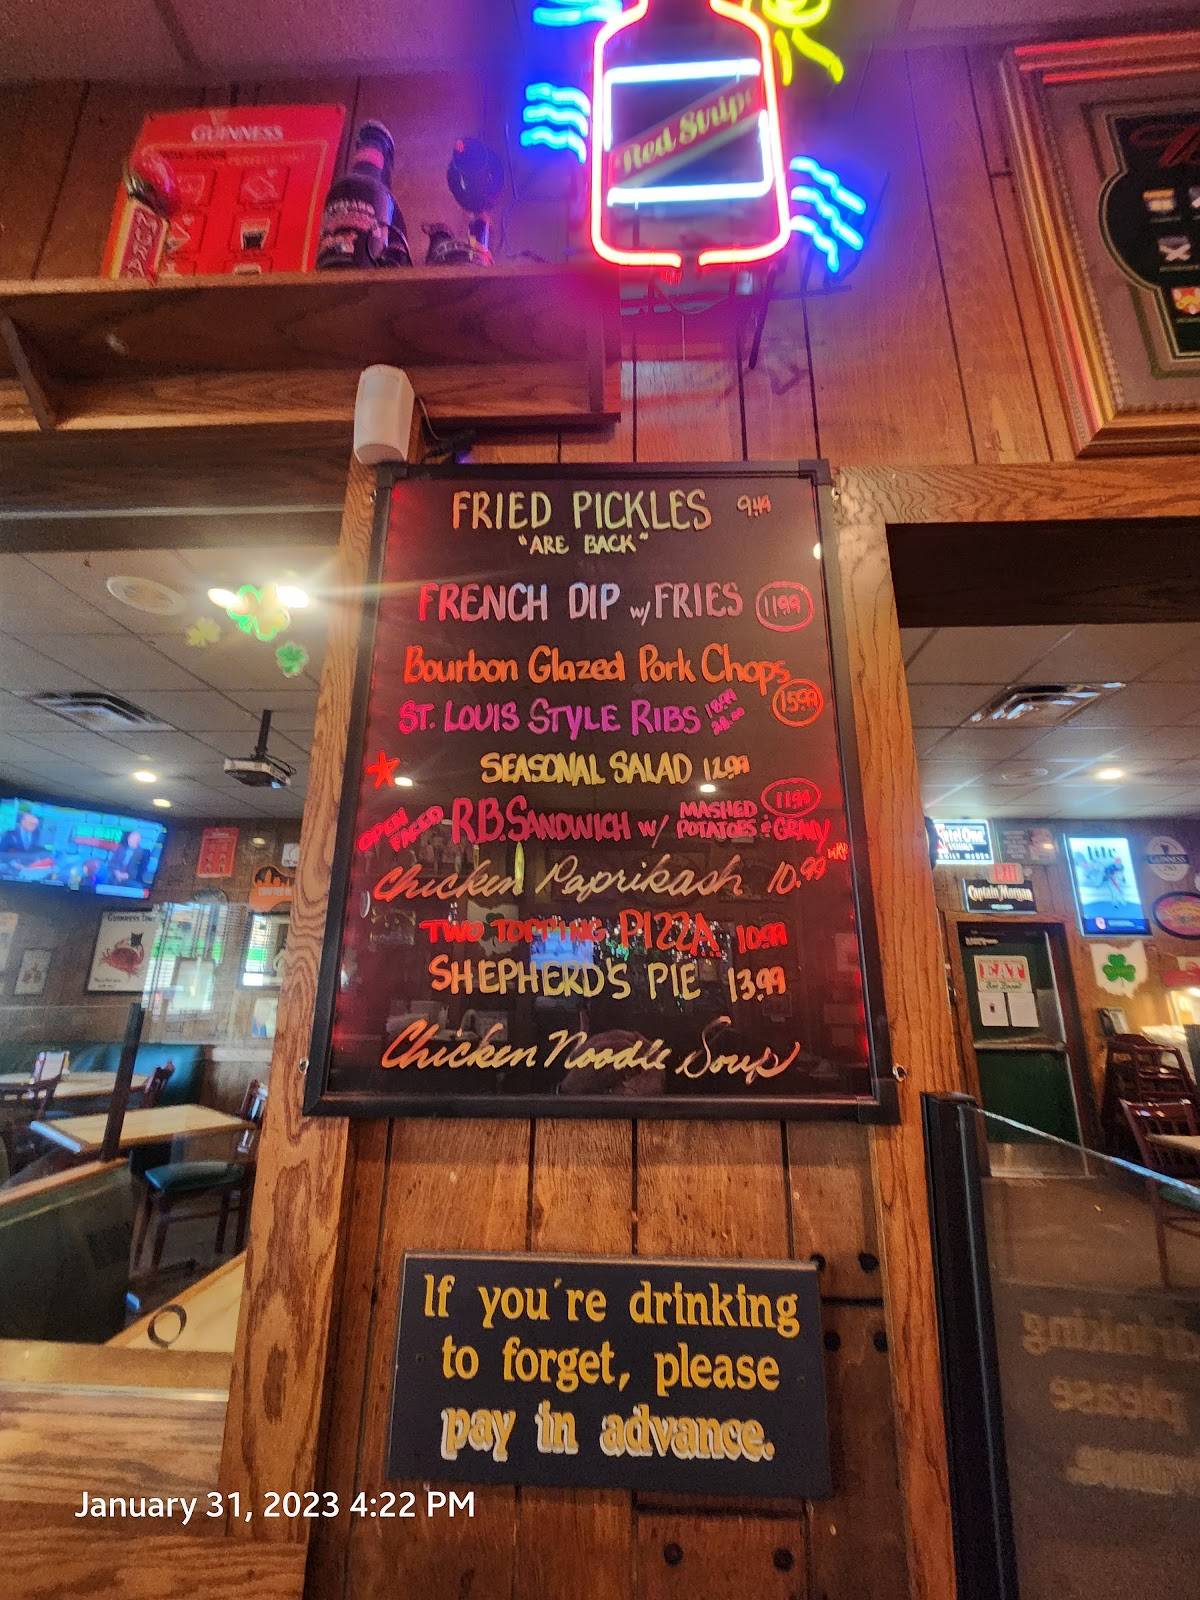 GUINNESS
Red Stripe
FRIED PICKLES 9.49
"ARE BACK"
FRENCH DIP w/ FRIES 11.99
Bourbon Glazed Pork Chops
15.99
ST. LOUIS STYLE RIBS 18.99
SEASONAL SALAD 12.99
OPEN FACED R.B. SANDWICH w/ MASHED POTATOES & GRAVY 11.99
Chicken Paprikash 10.99
TWO TOPPING PIZZA 10.99
SHEPHERD'S PIE 13.99
Chicken Noodle Soup
Lite
Captain Morgan
EAT
If you're drinking
to forget, please
pay in advance.
January 31, 2023 4:22 PM